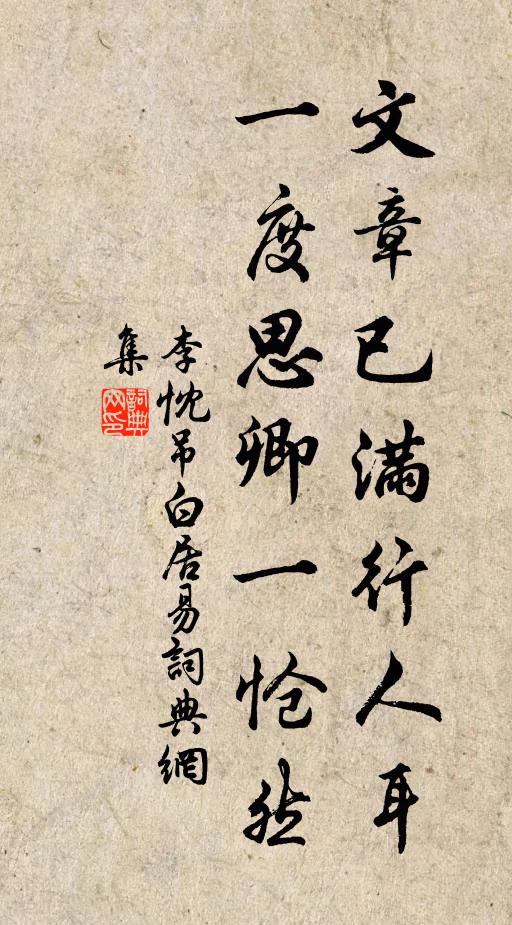 文章已滿行人耳
一度思卿一愴然
李忱吊白居易詞典網
集
詞典網印